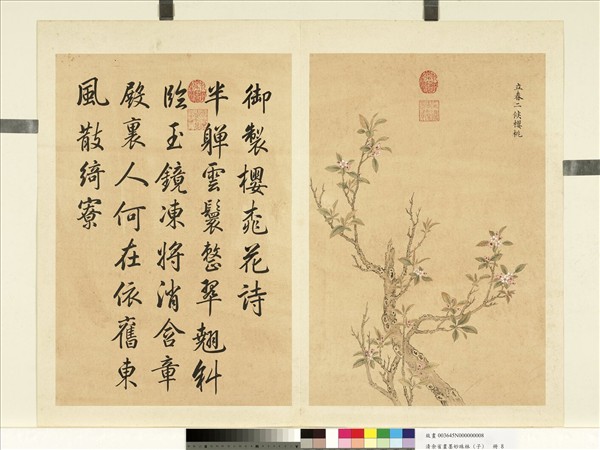 立春二候櫻桃
御製櫻桃花詩
半軃雲鬟整翠翹斜
臨玉鏡凍將消含章
殿裏人何在依舊東
風散綺寮
故畫 003645N000000008
清余省畫墨妙珠林（子） 冊 8